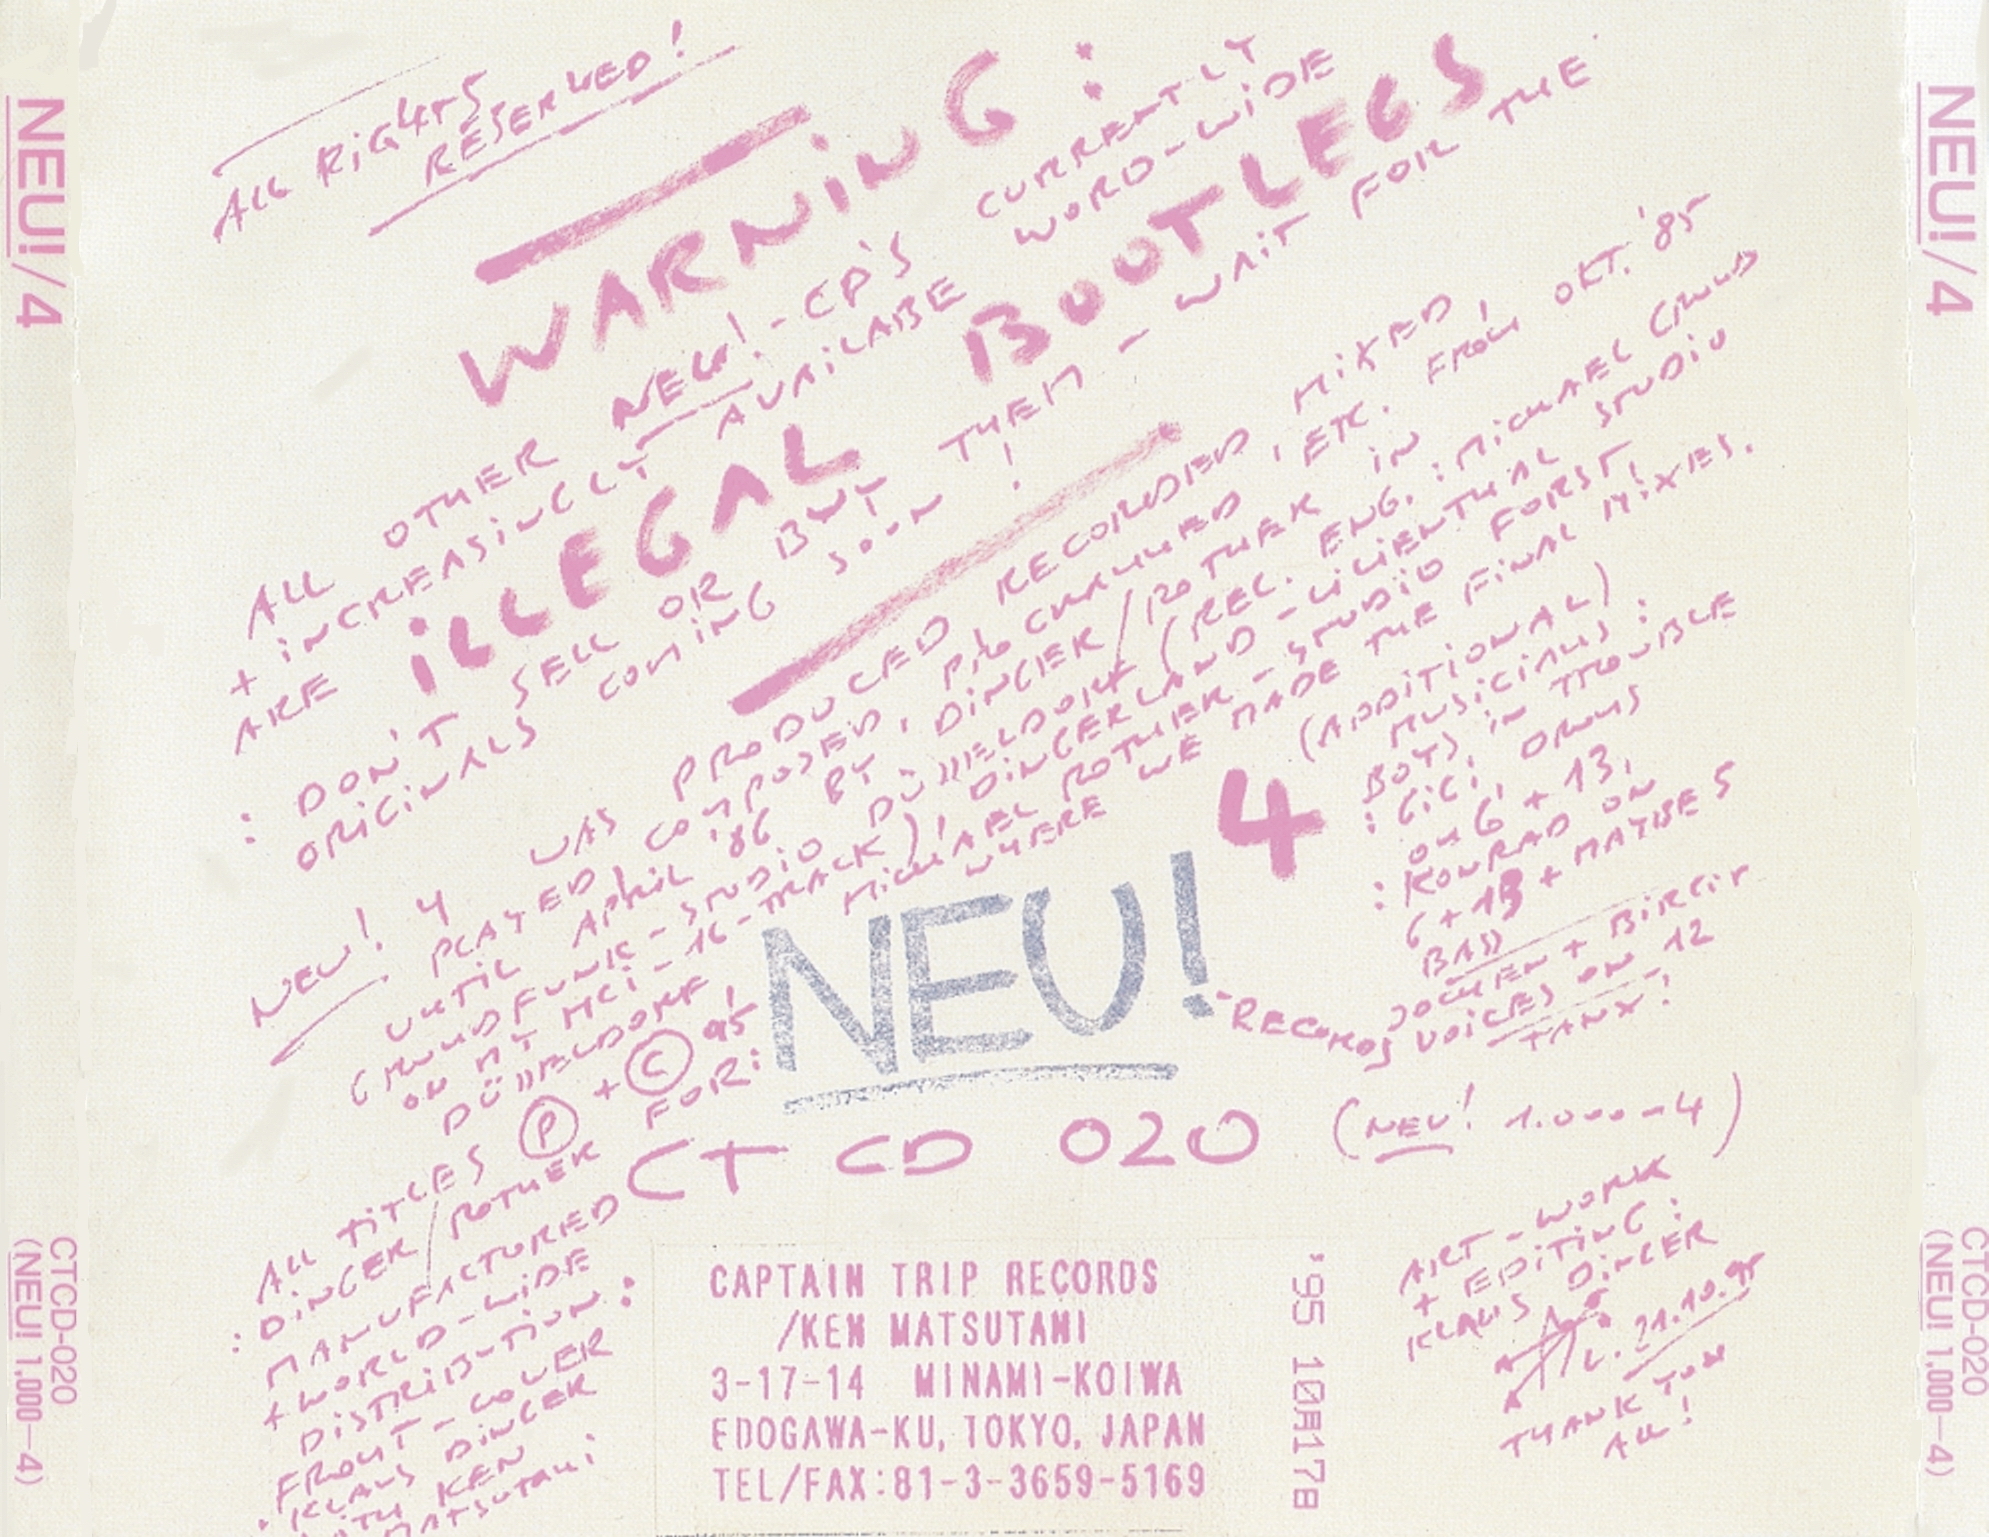 NEU!/4
CTCD-020
(NEU! 1.000-4)
ALL RiGHTS
RESERVED!
WARNiNG:
ALL OTHER NEU!-CD'S CURRENTLY
+ iNCREASiNGLY AVAiLABE WORD-WiDE
ARE iLLEGAL BOOTLEGS
: DON'T SELL OR BUY THEM - WAiT FOR THE
ORiGiNALS COMiNG SOON!
NEU! 4 WAS PRODUCED, RECORDED, MiXED,
PLAYED, COMPOSED, PROGRAMMED, ETC. FROM OKT. '85
UNTiL APRiL '86 BY DiNGER/ROTHER iN
GRUNDFUNK-STUDiO DÜSSELDORF (REC. ENG.: MiCHAEL GRUND
ON MY MCi-16-TRACK)! DiNGERLAND-LiLiENTHAL STUDiO
DÜSSELDORF! MiCHAEL ROTHER-STUDiO FORST,
WHERE WE MADE THE FiNAL MiXES.
4
(ADDiTiONAL)
MUSiCiANS:
BOYS iN TROUBLE
: GiGi, DRUMS
ON 6 + 13,
: KONRAD ON
6 + 13 + MATYSE 5
BASS
JOCHEN + BiRGiT
VOiCES ON 12
TANX!
ALL TiTLES Ⓟ + © 95!
: DiNGER/ROTHER FOR:
NEU!
-RECORDS
CT CD 020 (NEU! 1.000-4)
MANUFACTURED
+ WORLD-WiDE
DiSTRiBUTiON:
FRONT-COVER
: KLAUS DiNGER
WiTH KEN
MATSUTANi
CAPTAIN TRIP RECORDS
/KEN MATSUTANI
3-17-14 MINAMI-KOIWA
EDOGAWA-KU, TOKYO, JAPAN
TEL/FAX:81-3-3659-5169
'95 10月17日
ART-WORK
+ EDiTiNG:
KLAUS DiNGER
21.10.95
THANK YOU
ALL!
NEU!/4
CTCD-020
(NEU! 1.000-4)